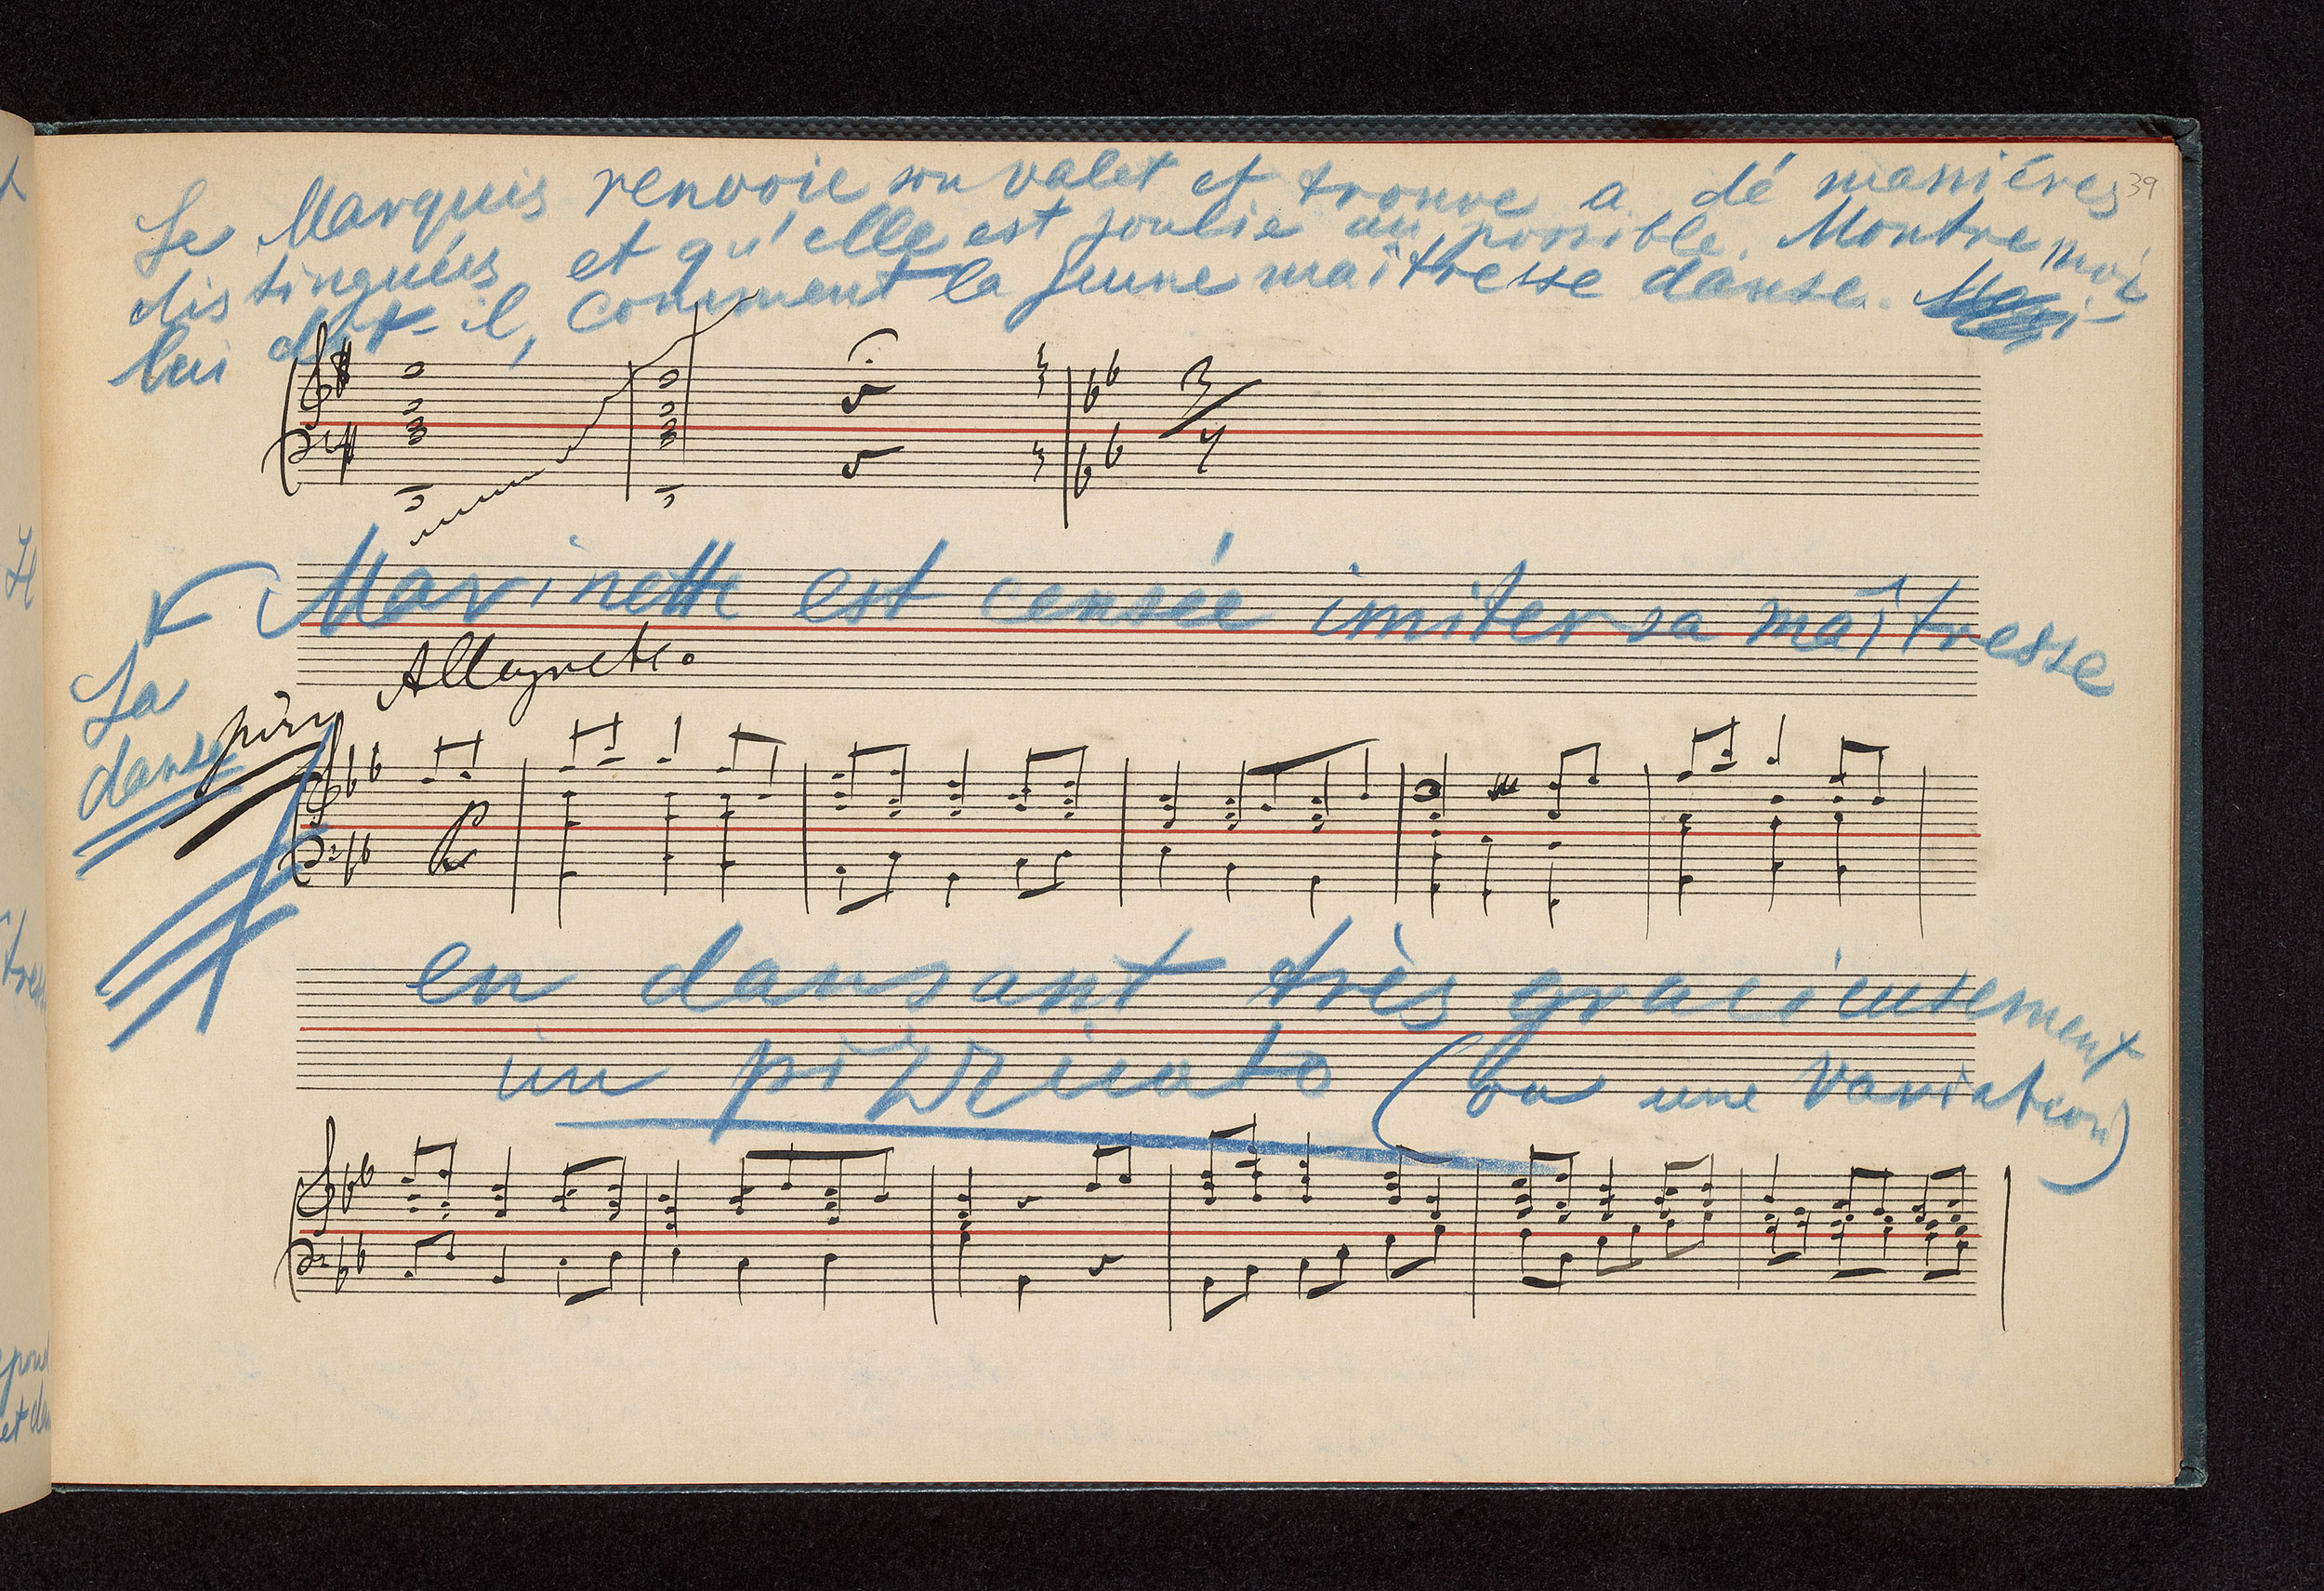 39
Le Marquis renvoie son valet et trouve a dé manières
distinguées et qu'elle est joulie au possible. Montre moi
lui dit-il, comment la jeune maîtresse danse.
3/4
Marinette est censée imiter sa maîtresse
La
danse
Allegretto
pizz
p
en dansant très gracieusement
un pizzicato (ou une variation)